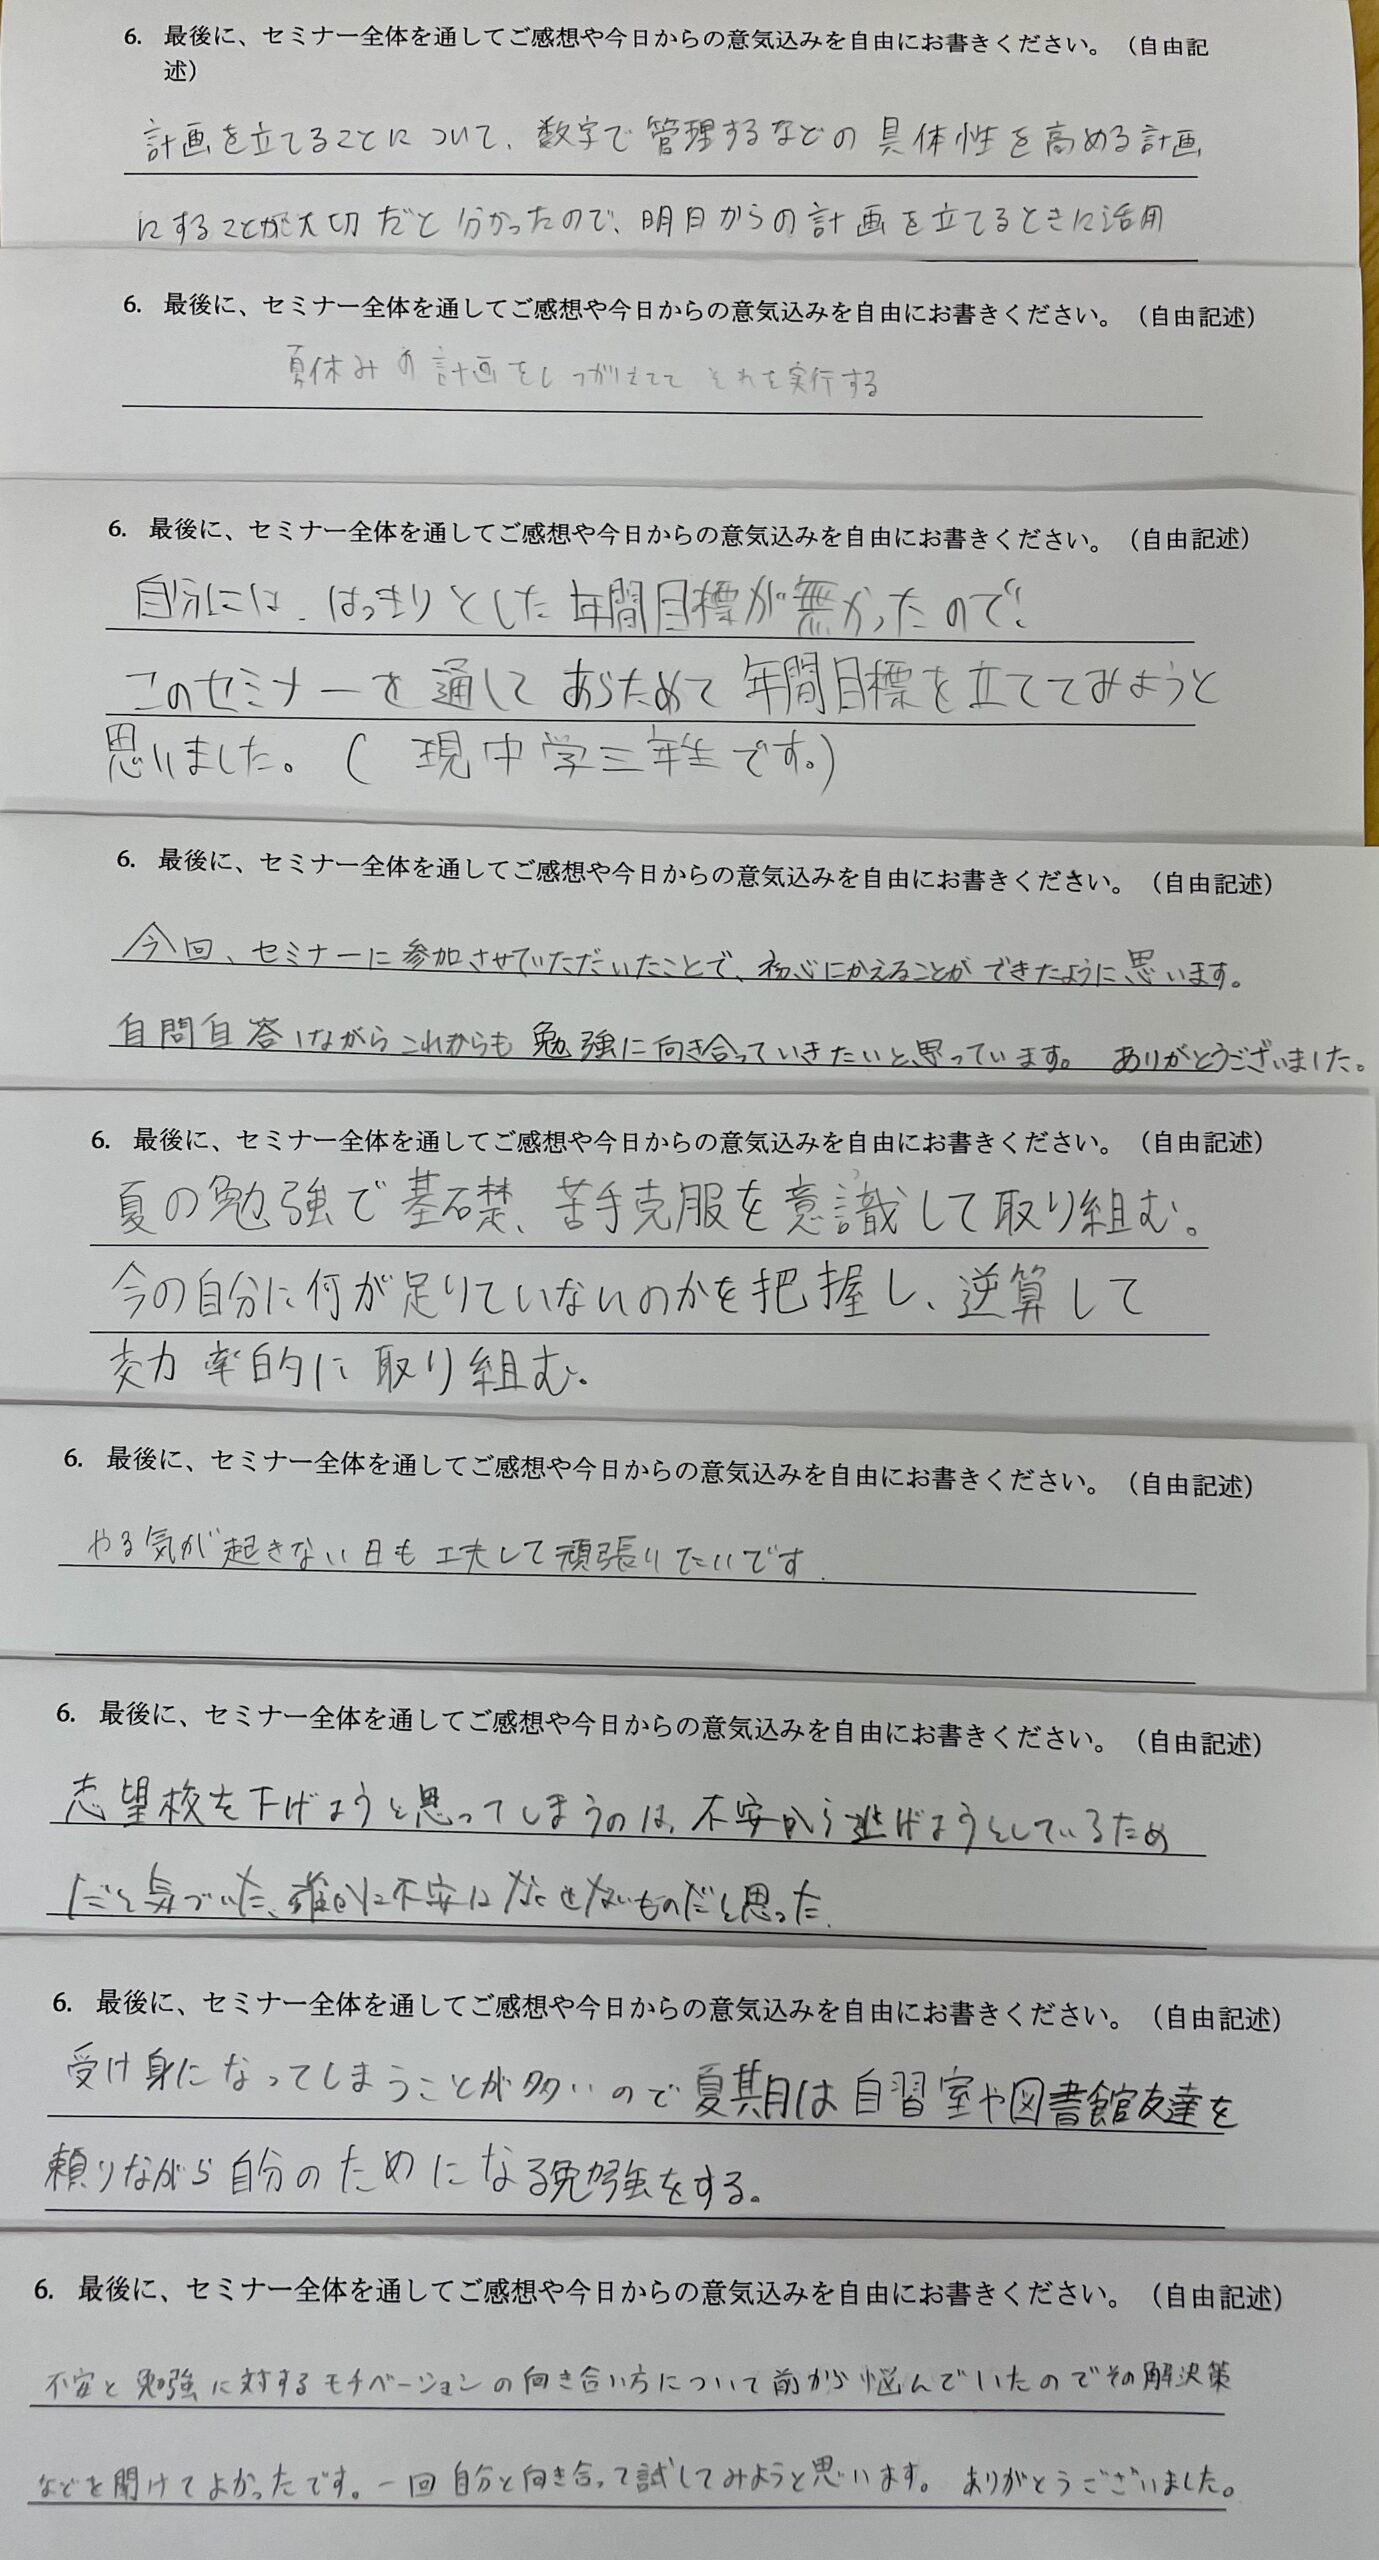 6. 最後に、セミナー全体を通してご感想や今日からの意気込みを自由にお書きください。（自由記
述）
計画を立てることについて、数字で管理するなどの具体性を高める計画
にすることが大切だと分かったので、明日からの計画を立てるときに活用
6. 最後に、セミナー全体を通してご感想や今日からの意気込みを自由にお書きください。（自由記述）
夏休みの計画をしっかり立てて それを実行する
6. 最後に、セミナー全体を通してご感想や今日からの意気込みを自由にお書きください。（自由記述）
自分には、はっきりとした年間目標が無かったので、
このセミナーを通してあらためて年間目標を立ててみようと
思いました。(現中学三年生です。)
6. 最後に、セミナー全体を通してご感想や今日からの意気込みを自由にお書きください。（自由記述）
今回、セミナーに参加させていただいたことで、初心にかえることができたように思います。
自問自答しながらこれからも勉強に向き合っていきたいと思っています。 ありがとうございました。
6. 最後に、セミナー全体を通してご感想や今日からの意気込みを自由にお書きください。（自由記述）
夏の勉強で基礎、苦手克服を意識して取り組む。
今の自分に何が足りていないのかを把握し、逆算して
効率的に取り組む。
6. 最後に、セミナー全体を通してご感想や今日からの意気込みを自由にお書きください。（自由記述）
やる気が起きない日も工夫して頑張りたいです.
6. 最後に、セミナー全体を通してご感想や今日からの意気込みを自由にお書きください。（自由記述）
志望校を下げようと思ってしまうのは、不安から逃げようとしているため
だと気づいた、 不安は ものだと思った.
6. 最後に、セミナー全体を通してご感想や今日からの意気込みを自由にお書きください。（自由記述）
受け身になってしまうことが多いので夏期は自習室や図書館友達を
頼りながら自分のためになる勉強をする。
6. 最後に、セミナー全体を通してご感想や今日からの意気込みを自由にお書きください。（自由記述）
不安と勉強に対するモチベーションの向き合い方について前から悩んでいたのでその解決策
などを聞けてよかったです。一回自分と向き合って試してみようと思います。 ありがとうございました。